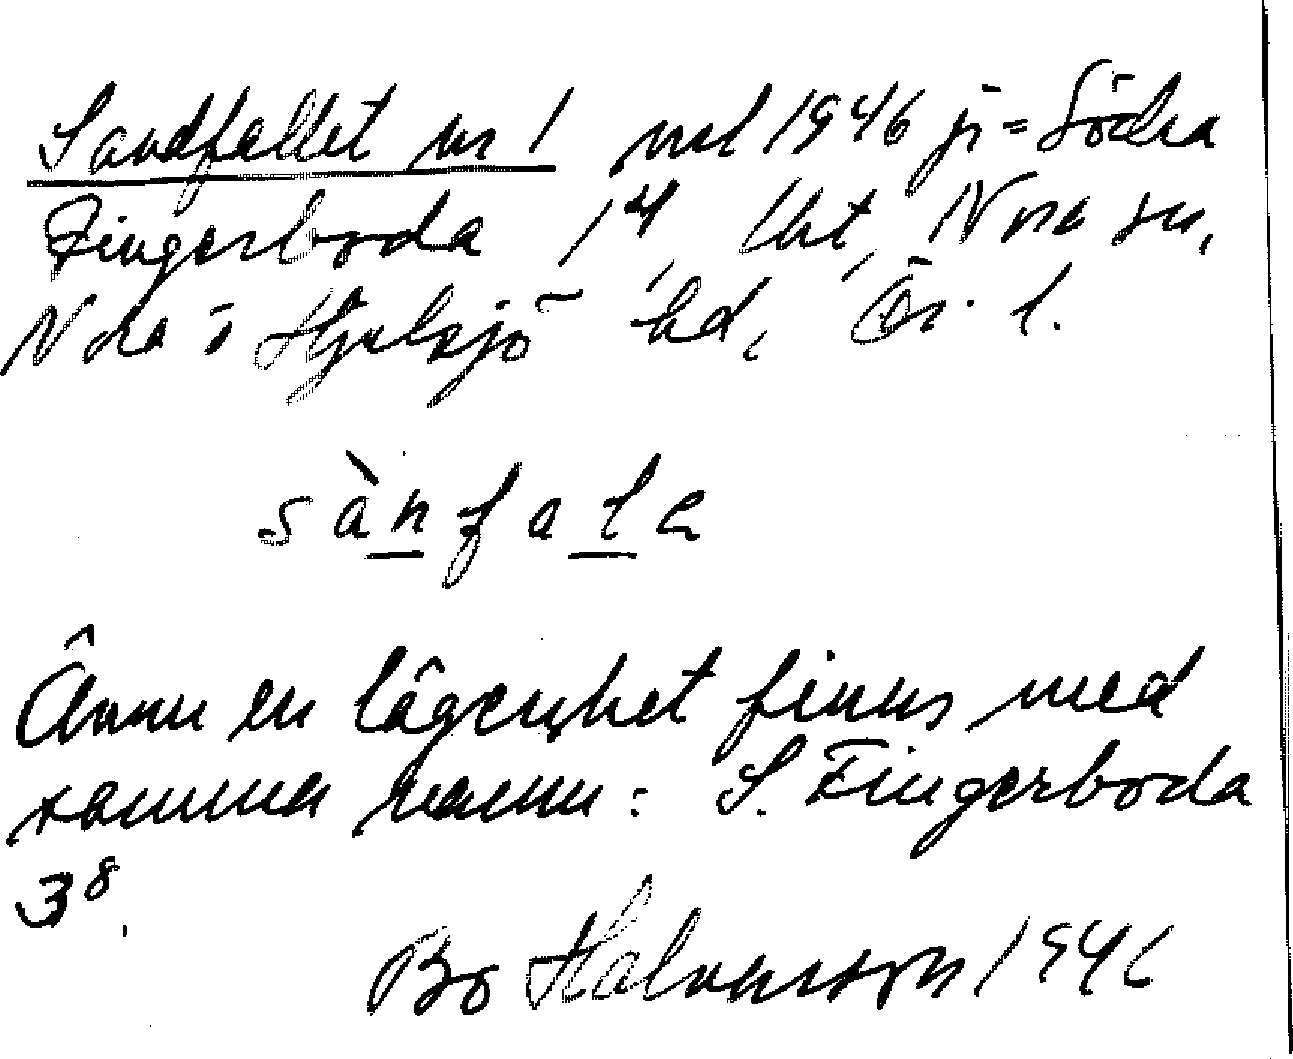 Sandfallet nr 1 ml 1946 ji = Södra
Fingerboda 1⁴, lht, Nora sn,
Nora o Hjulsjö hd, Ör. l.
sànfale
Ännu en lägenhet finns med
samma namn: S. Fingerboda
3⁸.
Bo Halvarsson 1946